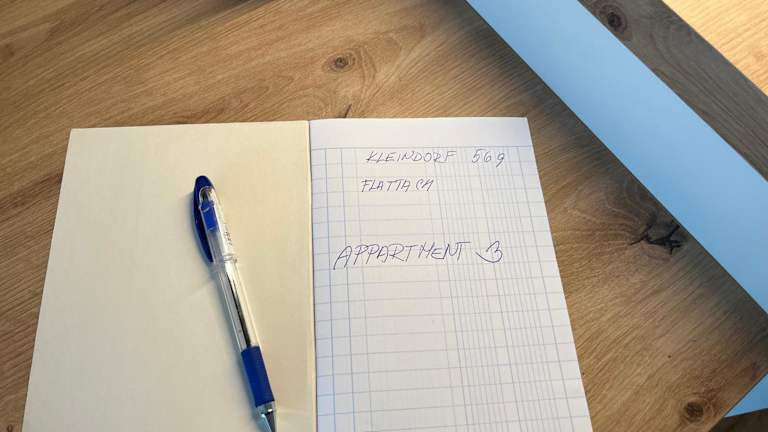 KLEINDORF 56g
FLATTACH
APPARTMENT 3